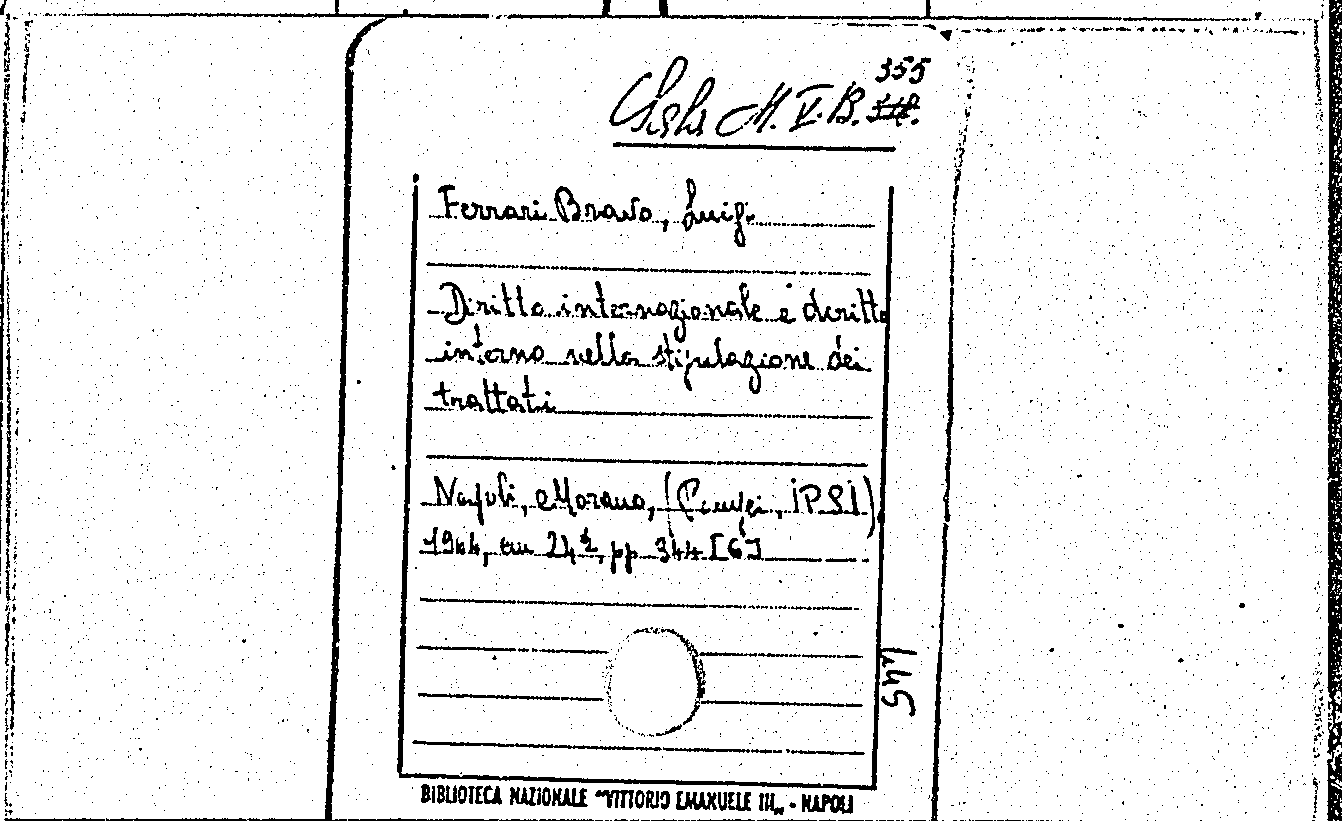 355
Sala M. V. B.
Ferrari Bravo, Luigi
Diritto internazionale e diritto
interno nella stipulazione dei
trattati
Napoli, Morano, (Pompei, IPSI)
1964, in 24½, pp 344 [6]
445
BIBLIOTECA NAZIONALE "VITTORIO EMANUELE III„ - NAPOLI